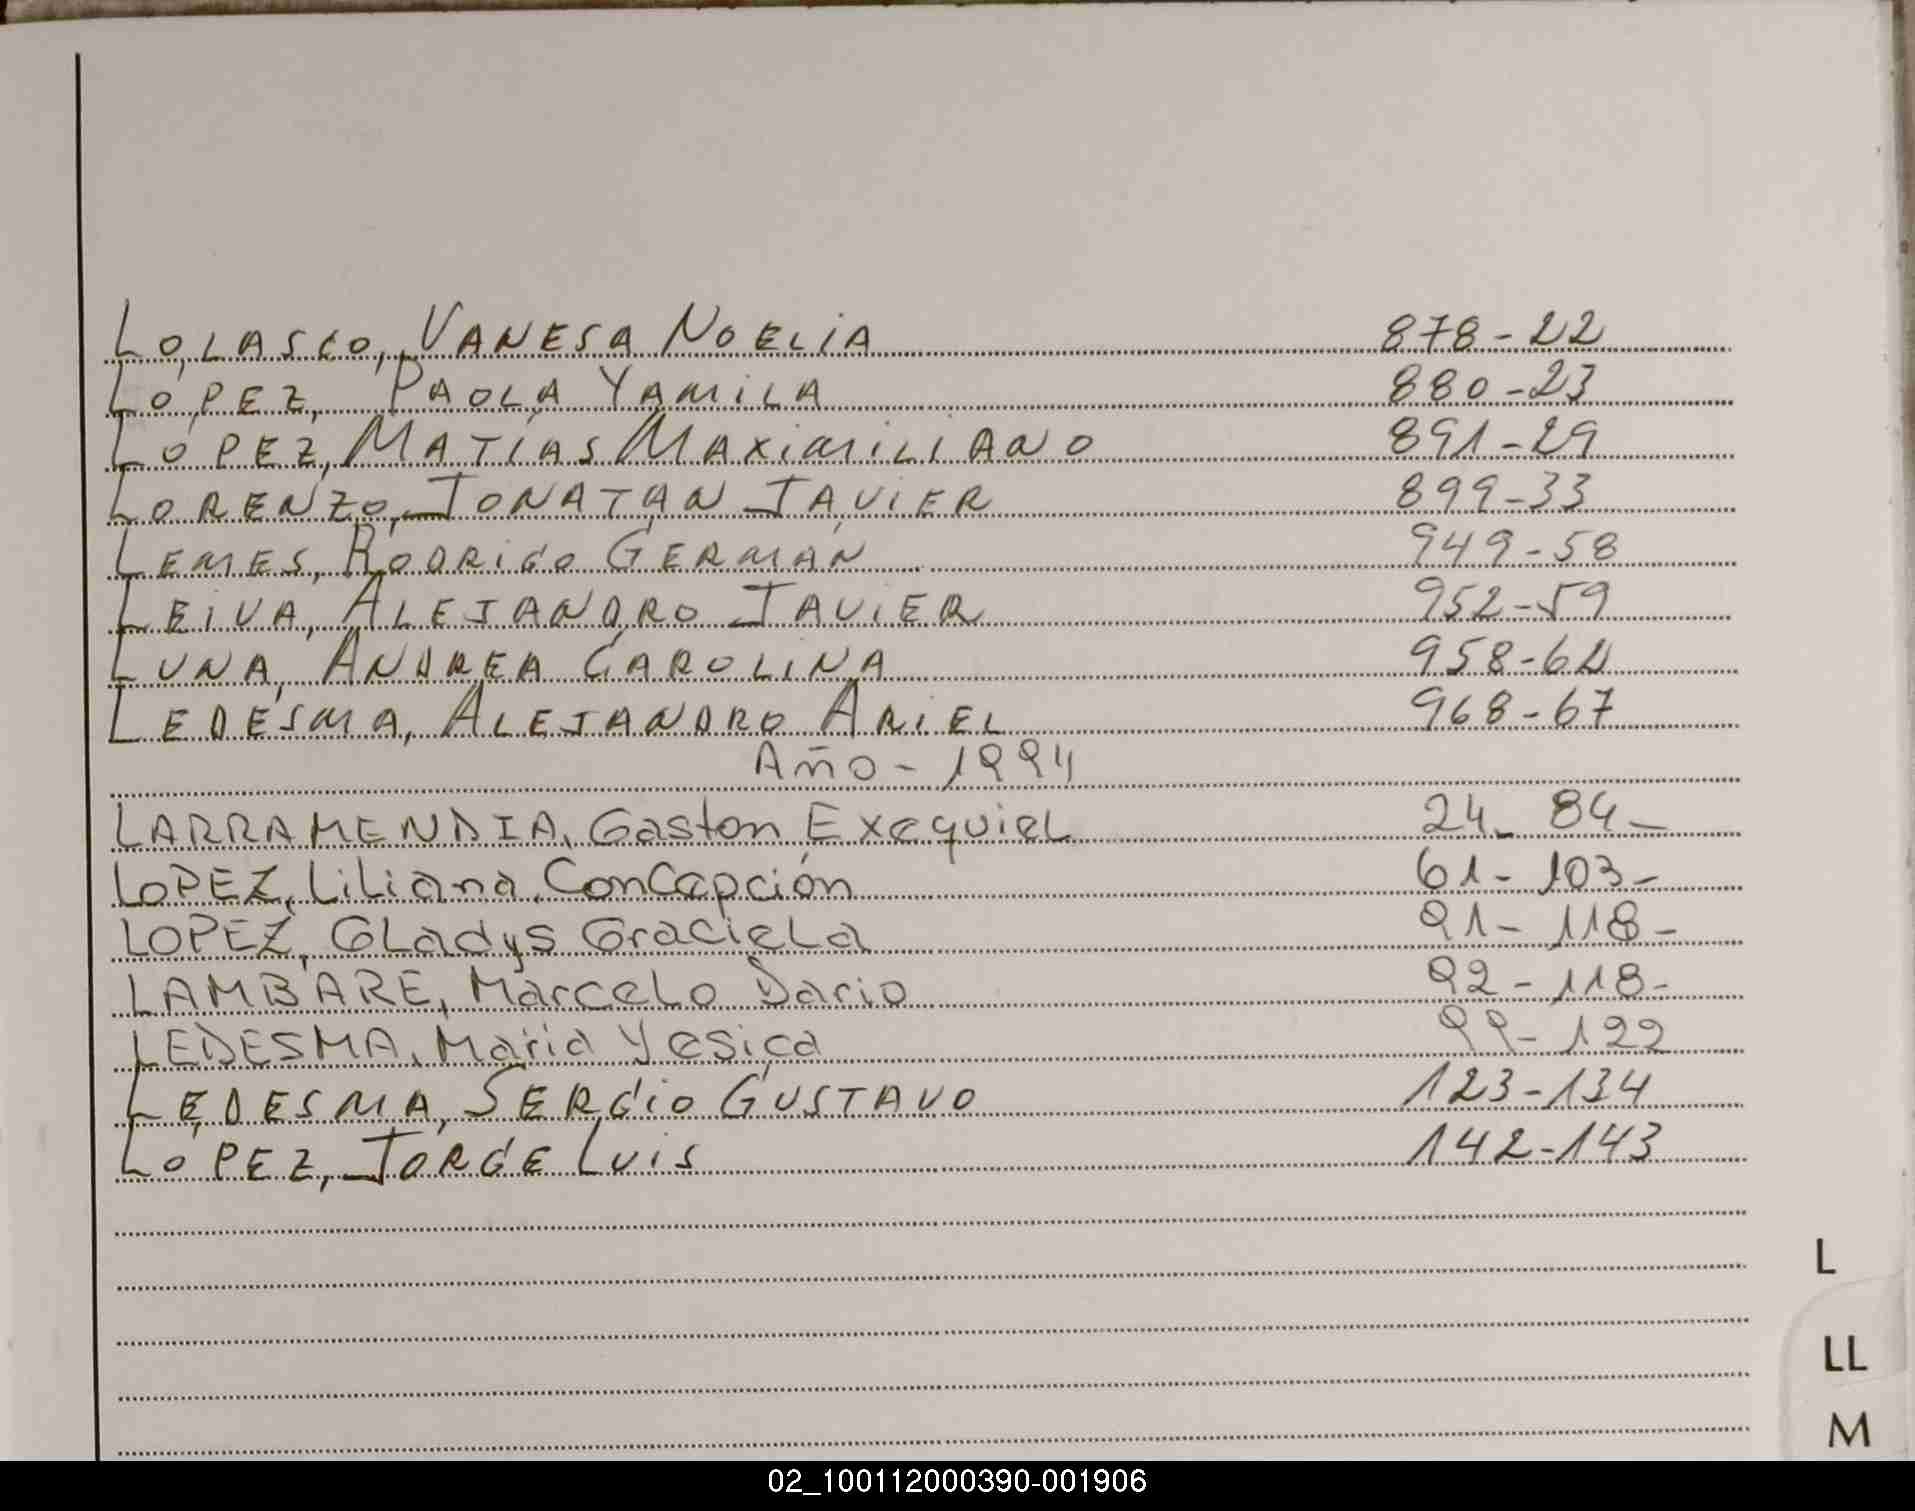 LOLASCO, VANESA NOELIA 878-22
LOPEZ, PAOLA YAMILA 880-23
LOPEZ, MATÍAS MAXIMILIANO 891-29
LORENZO, JONATAN JAVIER 899-33
LEMES, RODRIGO GERMAN 949-58
LEIVA, ALEJANDRO JAVIER 952-59
LUNA, ANDREA CAROLINA 958-62
LEDESMA, ALEJANDRO ARIEL 968-67
Año - 1994
LARRAMENDIA, Gaston Exequiel 24- 84-
LOPEZ, Liliana Concepción 61- 103-
LOPEZ, Gladys Graciela 91- 118-
LAMBARE, Marcelo Dario 92- 118-
LEDESMA, Maria Yesica 99- 122
LEDESMA, SERGIO GUSTAVO 123-134
LOPEZ, JORGE LUIS 142-143
L
LL
M
02_100112000390-001906